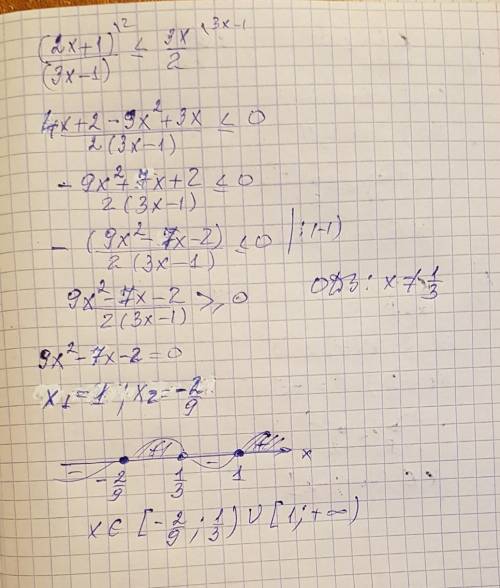 (2x+1)^{\2}/(3x-1) ≤ 3x/2^{\3x-1}
4x+2-9x²+3x/2(3x-1) ≤ 0
-9x²+7x+2/2(3x-1) ≤ 0
-(9x²-7x-2)/2(3x-1) ≤ 0 |:(-1)
9x²-7x-2/2(3x-1) ≥ 0 ОДЗ: x≠1/3
9x²-7x-2=0
x₁=1; x₂=-2/9
- + - + x
-2/9 1/3 1
x∈[-2/9; 1/3)∪[1;+∞)